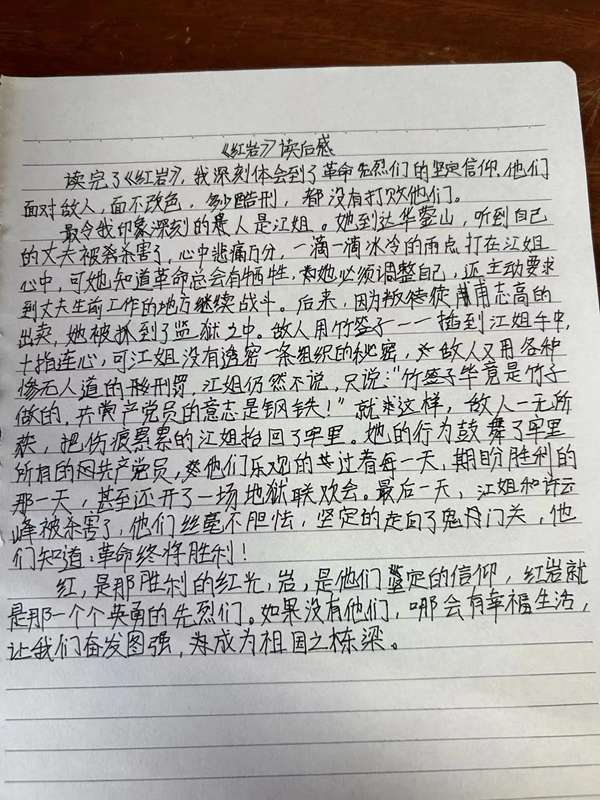 《红岩》读后感
读完了《红岩》，我深刻体会到了革命先烈们的坚定信仰。他们
面对敌人，面不改色，酷刑，都没有打败他们。
最令我印象深刻的人是江姐。她到达华蓥山，听到自己
的丈夫被杀害了，心中悲痛万分，一滴一滴冰冷的雨点打在江姐
心中，可她知道革命总会有牺牲，她必须调整自己，还主动要求
到丈夫生前工作的地方继续战斗。后来，因为叛徒甫志高的
出卖，她被抓到了监狱之中。敌人用竹签子一一插到江姐手中，
十指连心，可江姐没有透密一条组织的秘密，敌人又用各种
惨无人道的刑罚，江姐仍然不说，只说：“竹签子毕竟是竹子
做的，共产党员的意志是钢铁！”就这样，敌人一无所
获，把伤痕累累的江姐抬回了牢里。她的行为鼓舞了牢里
所有的共产党员，他们乐观的过着每一天，期盼胜利的
那一天，甚至还开了一场地狱联欢会。最后一天，江姐和许云
峰被杀害了，他们丝毫不胆怯，坚定的走向了鬼门关，他
们知道：革命终将胜利！
红，是那胜利的红光，岩，是他们坚定的信仰，红岩就
是那一个个英勇的先烈们。如果没有他们，哪会有幸福生活，
让我们奋发图强，成为祖国之栋梁。